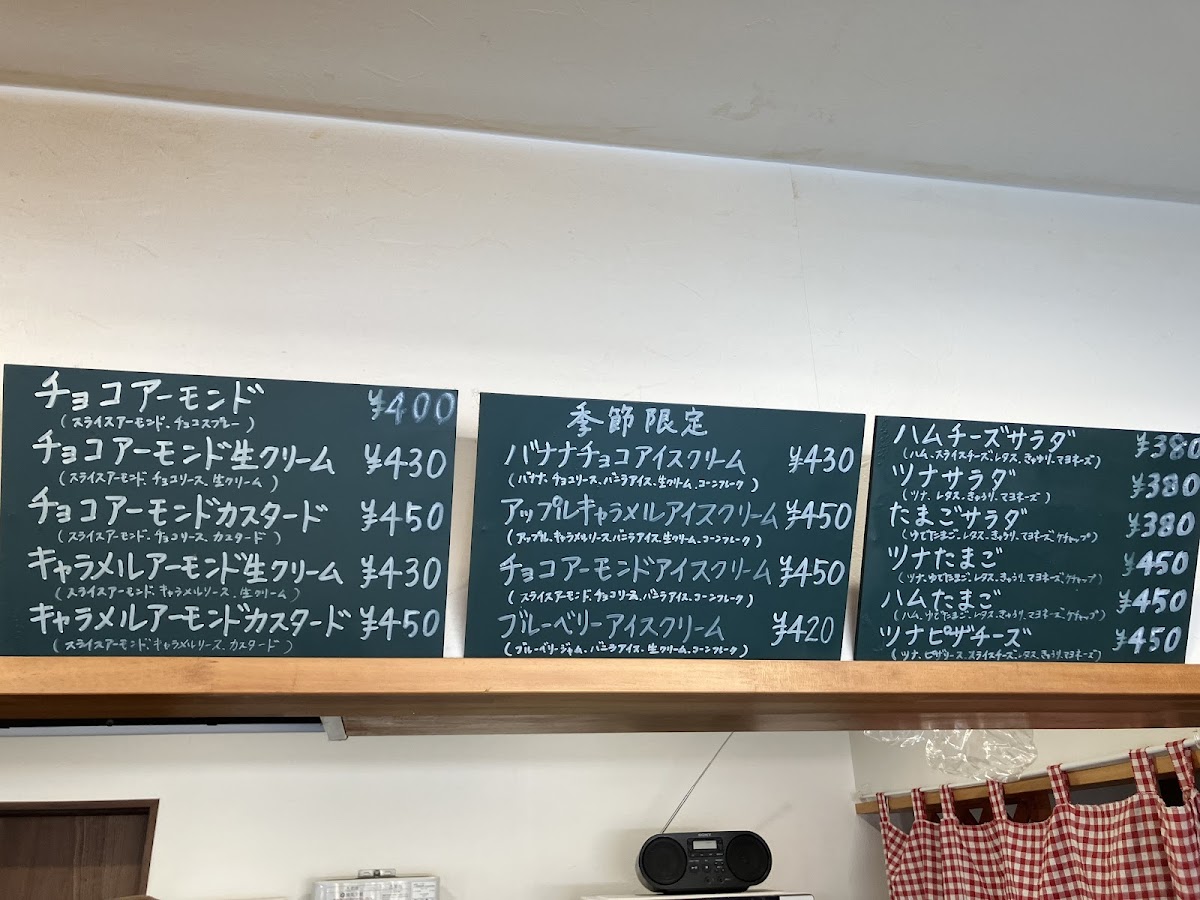 チョコアーモンド ¥400
(スライスアーモンド、チョコスプレー)
チョコアーモンド生クリーム ¥430
(スライスアーモンド、チョコソース、生クリーム)
チョコアーモンドカスタード ¥450
(スライスアーモンド、チョコソース、カスタード)
キャラメルアーモンド生クリーム ¥430
(スライスアーモンド、キャラメルソース、生クリーム)
キャラメルアーモンドカスタード ¥450
(スライスアーモンド、キャラメルソース、カスタード)
季節限定
バナナチョコアイスクリーム ¥430
(バナナ、チョコソース、バニラアイス、生クリーム、コーンフレーク)
アップルキャラメルアイスクリーム ¥450
(アップル、キャラメルソース、バニラアイス、生クリーム、コーンフレーク)
チョコアーモンドアイスクリーム ¥450
(スライスアーモンド、チョコソース、バニラアイス、コーンフレーク)
ブルーベリーアイスクリーム ¥420
(ブルーベリージャム、バニラアイス、生クリーム、コーンフレーク)
ハムチーズサラダ ¥380
(ハム、スライスチーズ、レタス、きゅうり、マヨネーズ)
ツナサラダ ¥380
(ツナ、レタス、きゅうり、マヨネーズ)
たまごサラダ ¥380
(ゆでたまご、レタス、きゅうり、マヨネーズ、ケチャップ)
ツナたまご ¥450
(ツナ、ゆでたまご、レタス、きゅうり、マヨネーズ、ケチャップ)
ハムたまご ¥450
(ハム、ゆでたまご、レタス、きゅうり、マヨネーズ、ケチャップ)
ツナピザチーズ ¥450
(ツナ、ピザソース、スライスチーズ、レタス、きゅうり、マヨネーズ)
SONY